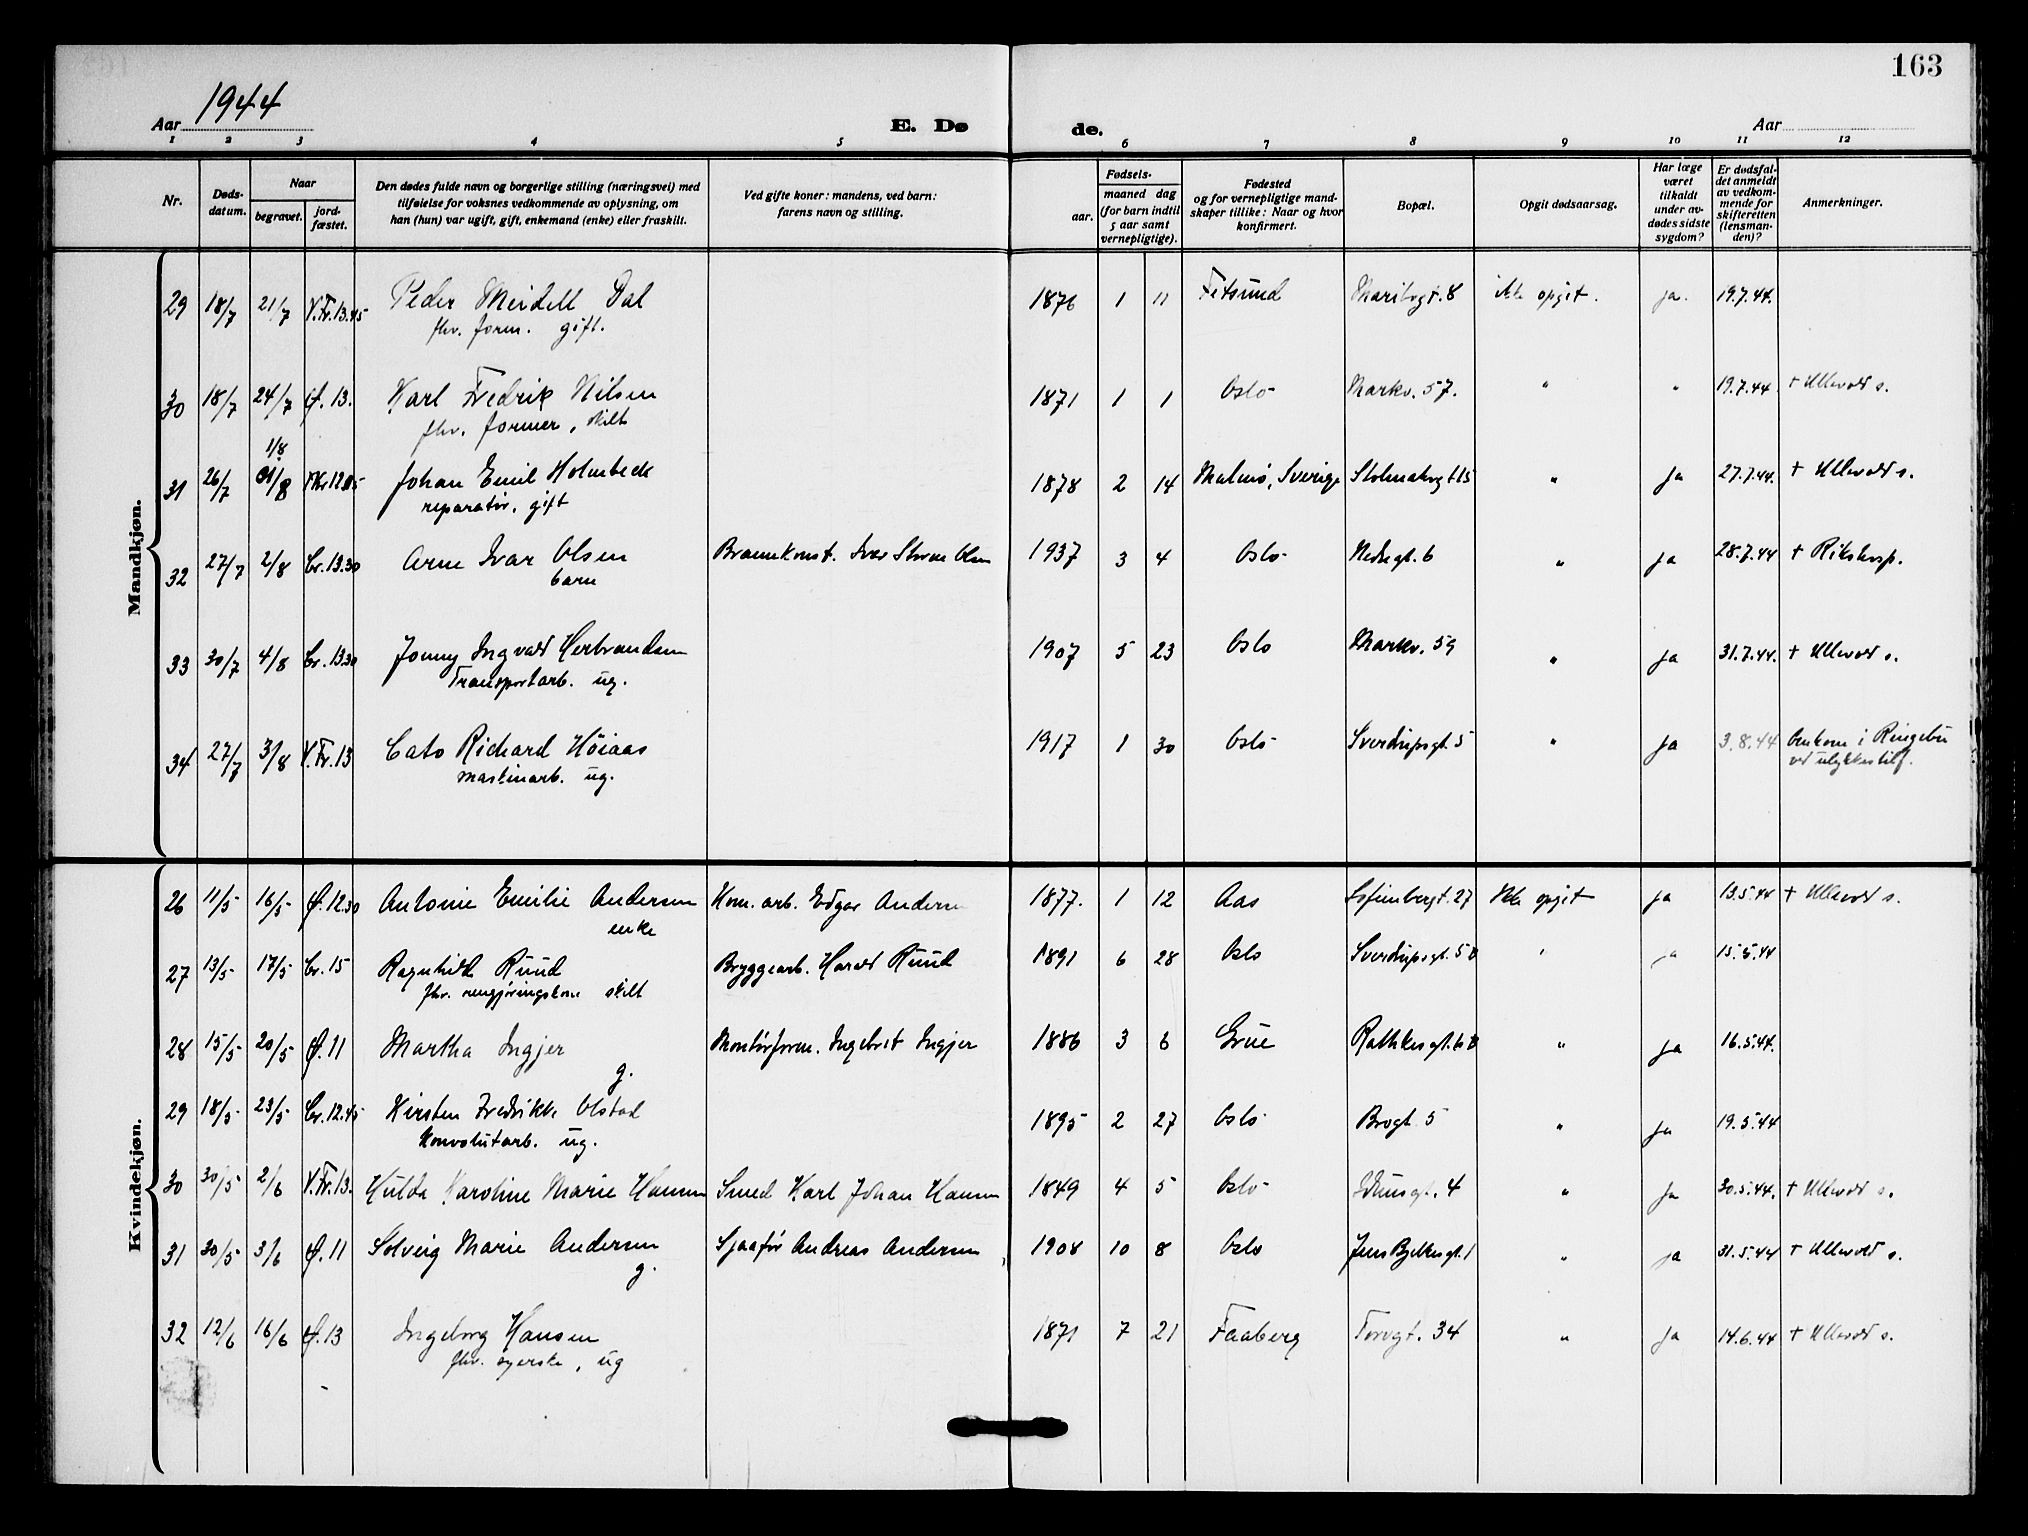 163
Aar 1944
E. Dø
de.
Aar
1 2 3 4 5 6 7 8 9 10 11 12
Nr.
Døds-
datum.
Naar
begravet.
jord-
fæstet.
Den dødes fulde navn og borgerlige stilling (næringsvei) med
tilføielse for voksnes vedkommende av oplysning, om
han (hun) var ugift, gift, enkemand (enke) eller fraskilt.
Ved gifte koner: mandens, ved barn:
farens navn og stilling.
Fødsels-
aar.
maaned dag
(for barn indtil
5 aar samt
vernepligtige).
Fødested
og for vernepligtige mand-
skaper tillike: Naar og hvor
konfirmert.
Bopæl.
Opgit dødsaarsag.
Har læge
været
tilkaldt
under av-
dødes sidste
sygdom?
Er dødsfal-
det anmeldt
av vedkom-
mende for
skifteretten
(lensman-
den)?
Anmerkninger.
Mandkjøn.
29 18/7 21/7 V.Fr.13.45 Peder Meidell Dal 1876 1 11 Fetsund Maribogt. 8 ikke opgit. ja. 19.7.44.
fhv. form. gift.
30 18/7 24/7 Ø. 13. Karl Fredrik Nilsen 1871 1 1 Oslo Markv. 57. " " 19.7.44 + Ullevål s.
fhv. former, skilt
1/8
31 26/7 Johan Emil Holmbeck 1878 2 14 Malmø, Sverige " ja 27.7.44. + Ullevål s.
reparatør, gift
32 27/7 2/8 Cr. 13.30 Arne Ivar Olsen 1937 3 4 Oslo Nedregt. 6 " ja 28.7.44 + Rikshosp.
barn
33 30/7 4/8 Cr. 13.30 Jonny Ingvald Herbrandsen 1907 5 23 Oslo Markv. 59 " ja 31.7.44. + Ullevål s.
Transportarb. ug.
34 27/7 3/8 V.Fr.13 Cato Richard Høiaas 1917 1 30 Oslo Sverdrupsgt. 5 " ja 3.8.44 Omkom i Ringebu
maskinarb. ug. ved ulykkestilf.
Kvindekjøn.
26 11/5 16/5 Ø.12.30 Antonie Emilie Andersen Kom. arb. Edgar Andersen 1877. 1 12 Aas 27 Ikke opgit ja 13.5.44 + Ullevål s.
enke
27 13/5 17/5 Cr. 15 Ragnhild Ruud Bryggearb. Harald Ruud 1891 6 28 Oslo Sverdrupsgt. 5 B " ja 15.5.44
fhv. rengjøringskone skilt
28 15/5 20/5 Ø. 11 Martha Ingjer Montørform. Ingebret Ingjer 1886 3 6 Grue Rathkesgt. 6 B " ja 16.5.44.
g.
29 18/5 23/5 Cr. 12.45 Kirsten Fredrikke Olstad 1895 2 27 Oslo Brogt. 5 " ja 19.5.44
Konvolutarb. ug.
30 30/5 2/6 V.Fr.13. Hulda Karoline Marie Hansen Smed Karl Johan Hansen 1849 4 5 Oslo Idunsgt. 4 " ja 30.5.44. + Ullevål s.
31 30/5 3/6 Ø. 11 Solveig Marie Andersen Sjåfør Andreas Andersen 1908 10 8 Oslo Jens Bjelkesgt. 1 " ja 31.5.44 + Ullevål s.
g.
32 12/6 16/6 Ø. 13 Ingeborg Hansen 1871 7 21 Faaberg Torvgt. 34 " ja 14.6.44 + Ullevål s.
fhv. syerske, ug